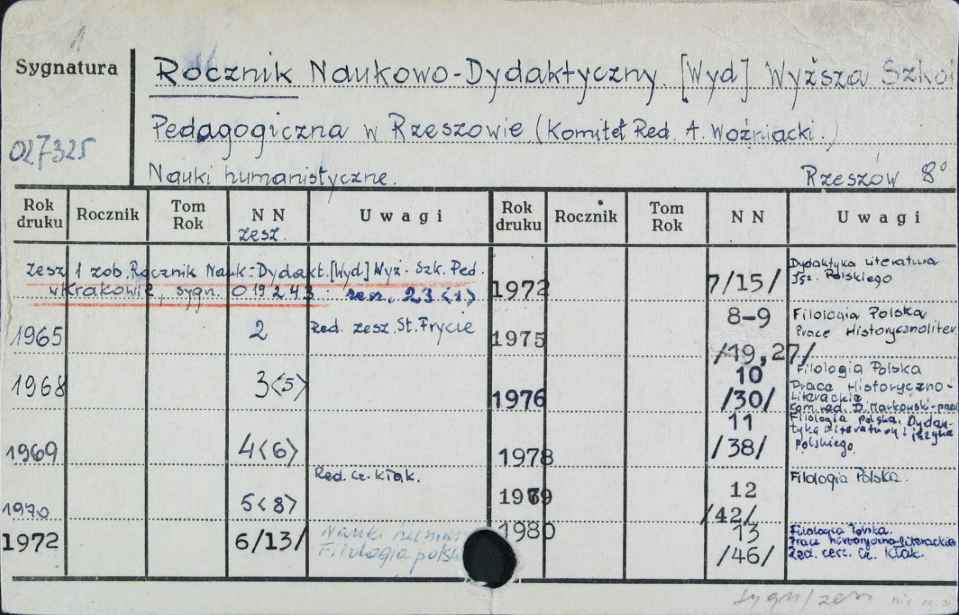 1
Sygnatura
027325
Rocznik Naukowo-Dydaktyczny. [Wyd] Wyższa Szkoł
Pedagogiczna w Rzeszowie (Komitet Red. A. Woźniacki.)
Nauki humanistyczne. Rzeszów 8°
Rok druku Rocznik Tom Rok NN Uwagi Rok druku Rocznik Tom Rok NN Uwagi
zesz.
zesz 1 zob. Rocznik Nauk-Dydakt. [Wyd] Wyż. Szk. Ped.
w Krakowie, sygn. 019243 zesz. 23<1>
1965 2 Red. zesz. St. Frycie
1968 3<5>
1969 4<6>
1970 5<8> Red. Cz. Kłak.
1972 6/13/ Nauki human
Filologia polsk
1972 7/15/ Dydaktyka Literatura
Jęz. Polskiego
1975 8-9 /19,27/ Filologia Polska
Prace Historycznoliter
1976 10 /30/ Filologia Polska
Prace Historyczno-
Literackie
1978 11 /38/ Filologia Polska. Dydak-
tyka literatury i języka
polskiego
1979 12 /42/ Filologia Polska.
1980 13 /46/ Filologia Polska.
Prace historyczno-literackie
Red. Cz. Kłak.